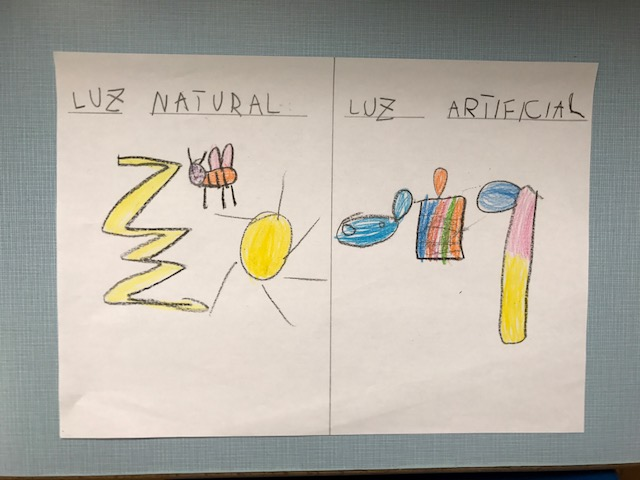 LUZ NATURAL
LUZ ARTIFICIAL